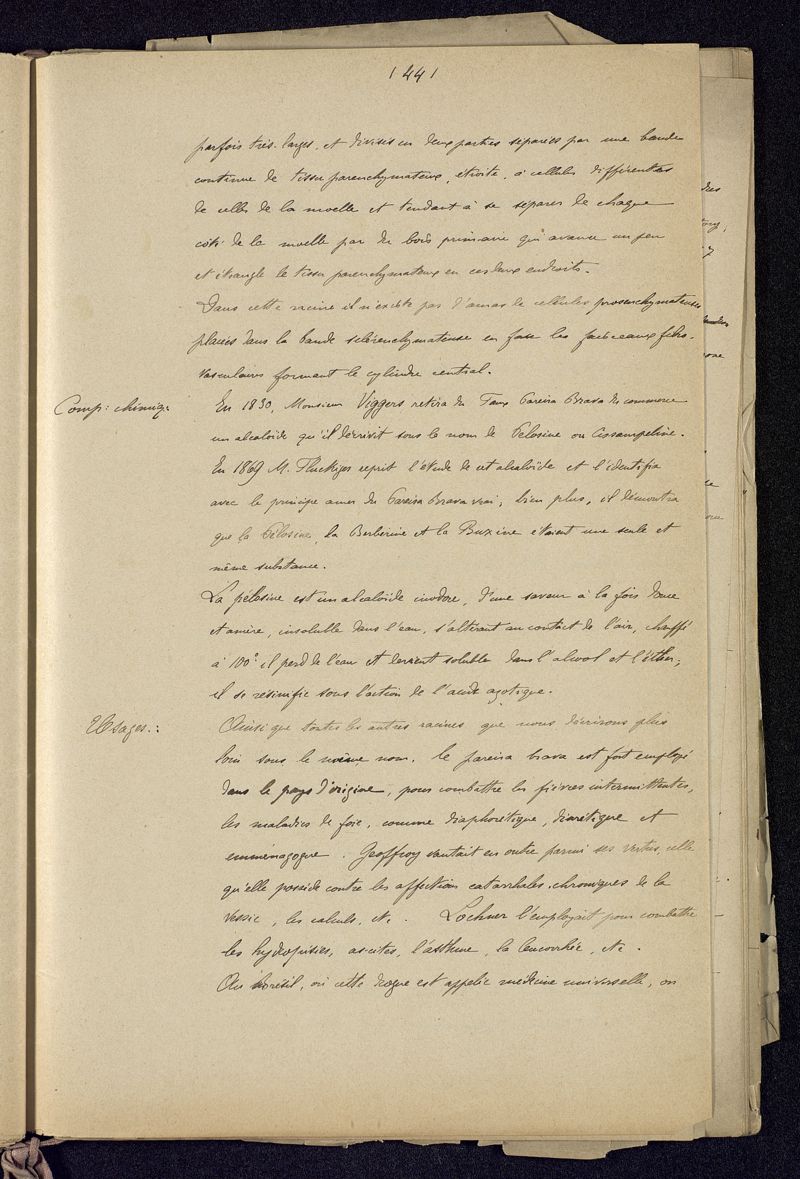 (44)
parfois très-larges, et divisés en deux parties séparées par une bande
continue de tissu parenchymateux, étroite, à cellules différentes
de celles de la moelle et tendant à se séparer de chaque
côté de la moelle par du bois primaire qui avance un peu
et étrangle le tissu parenchymateux en ces deux endroits.
Dans cette racine il n'existe pas d'amas de cellules prosenchymateuses
placées dans la bande sclérenchymateuse en face les faisceaux fibro-
vasculaires formant le cylindre central.
Comp: chimiq.
En 1830, Monsieur Viggers retira du Faux Pareira Brava du commerce
un alcaloïde qu'il décrivit sous le nom de Pélosine ou Cissampeline.
En 1869 M. Fluckiger reprit l'étude de cet alcaloïde et l'identifia
avec le principe amer du Pareira Brava vrai; bien plus, il démontra
que la Pélosine, la Berbérine et la Buxine étaient une seule et
même substance.
La pélosine est un alcaloïde inodore, d'une saveur à la fois douce
et amère, insoluble dans l'eau, s'altérant au contact de l'air, chauffé
à 100° il perd de l'eau et devient soluble dans l'alcool et l'éther;
il se résinifie sous l'action de l'acide azotique.
Usages.:
Ainsi que toutes les autres racines que nous décrirons plus
loin sous le même nom, le pareira brava est fort employé
dans le pays d'origine, pour combattre les fièvres intermittentes,
les maladies de foie, comme diaphorétique, diurétique et
emménagogue. Geoffroy vantait en outre parmi ses vertus, celle
qu'elle possède contre les affections catarrhales chroniques de la
vessie, les calculs, etc. Lochner l'employait pour combattre
les hydropisies, ascites, l'asthme, la leucorrhée, etc.
Au Brésil, où cette drogue est appelée médecine universelle, on